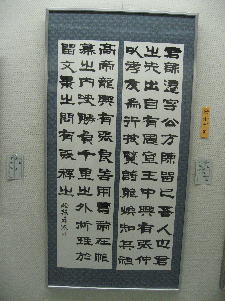 君諱遷字公方陳留己吾人也君
之先出自有周宣王中興有張仲
以孝友為行披覽詩雅煥知其祖
高帝龍興有張良善用籌策在帷
幕之內決勝負千里之外析珪於
留文景之間有張釋之